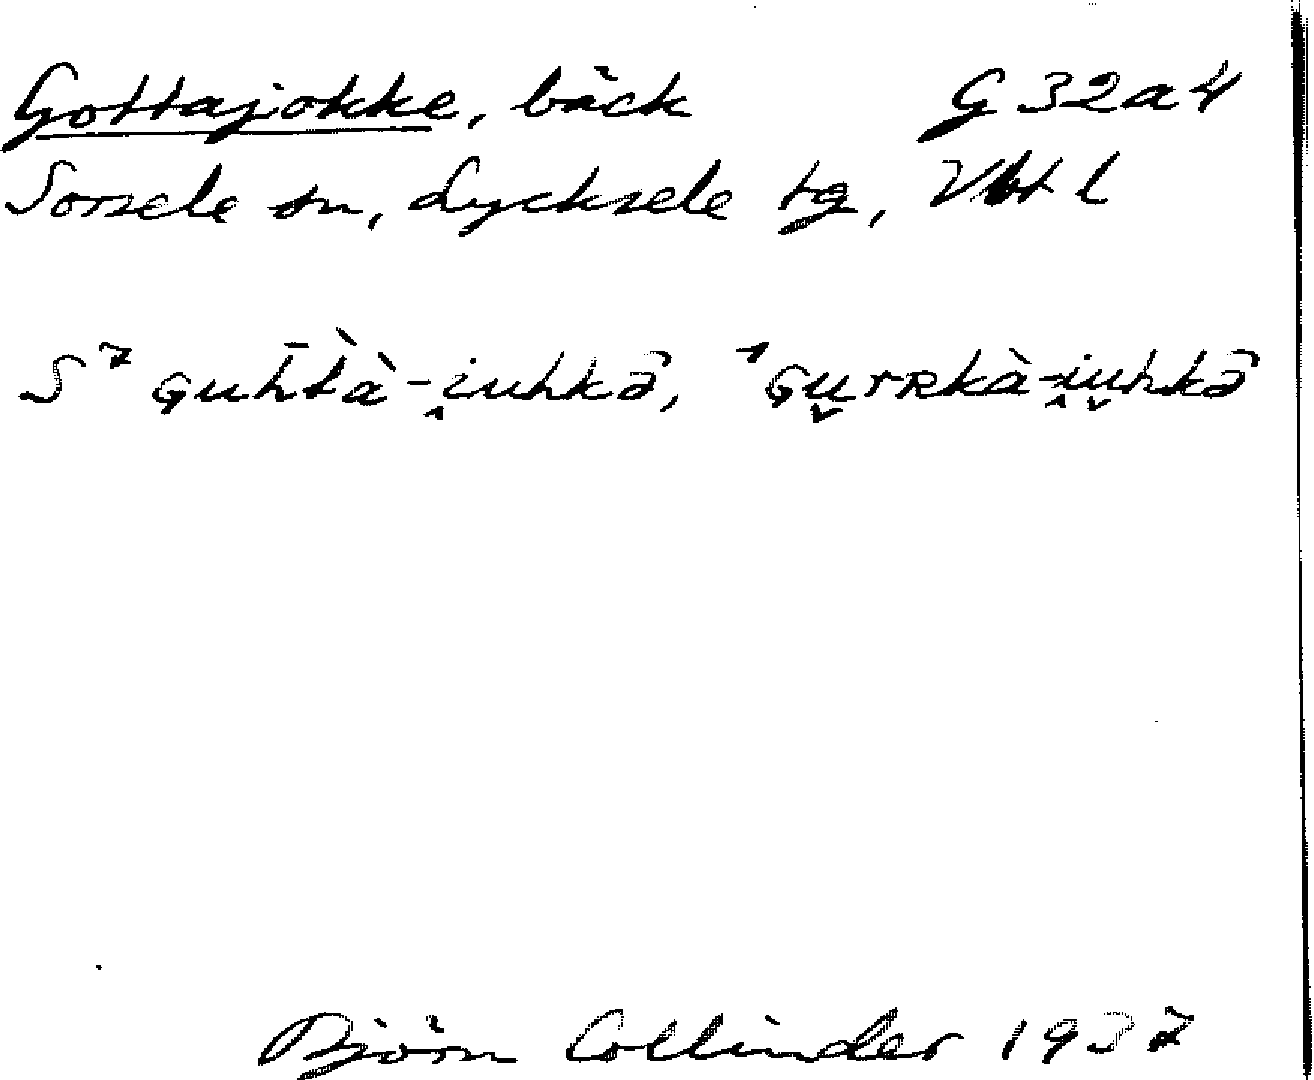 Gottajokke, bäck G 32a4
Sorsele sn, Lycksele tg, Vbt l
S⁷ Guh̄tà-i̭uhkə̄, ⁴Gu̬rrʀkà-i̭u̬hkə̄
Björn Collinder 1937